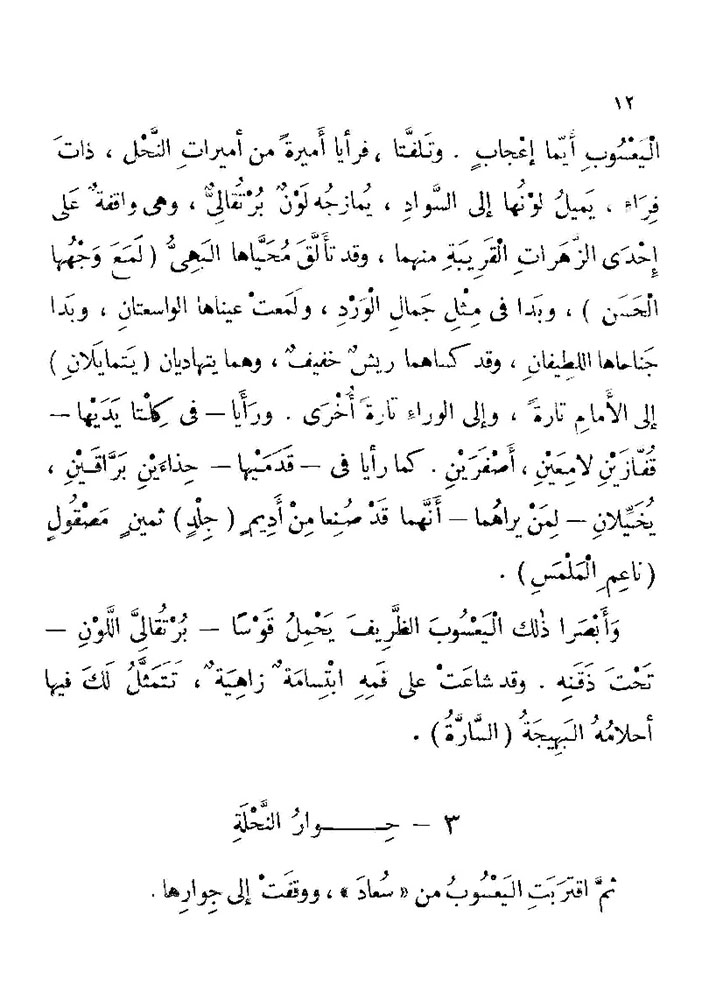 ١٢
الْيَعْسُوبِ أَيَّما إعْجابٍ . وتَلفَّتا ، فرأيا أَميرةً من أميراتِ النَّحْل ، ذاتَ
فِرَاءِ ، يَميلُ لوْنُها إلى السَّوادِ ، يُمازجُه لَوْنٌ بُرْتُقاليٌّ ، وهى واقفةٌ عَلَى
إحْدَى الزَّهَراتِ الْقَريبَةِ منهما ، وقد تأَلَّقَ مُحَيَّاها البَهِىُّ ( لَمَعَ وَجْهُها
الْحَسَن ) ، وبَدا فى مِثْلِ جَمالِ الْوَرْدِ ، ولَمَعتْ عيناها الواسعتانِ ، وبَدَا
جَناحاها اللطِيفانِ ، وقد كساهما ريشٌ خفيفٌ ، وهما يتهاديان ( يَتمايَلَانِ )
إلى الأَمامِ تارةً ، وإلى الوراءِ تارةً أُخْرَى . ورَأَيا – فى كِلْتا يَدَيْها –
قُفَّازَيْنِ لامِعَيْنِ ، أَصْفَرَيْنِ . كما رأيا فى – قَدَمَيْها – حِذاءَيْنِ بَرَّاقَيْنِ ،
يُخَيِّلانِ – لِمَنْ يراهُما – أَنَّهما قَدْ صُنِعا مِنْ أَديمٍ ( جِلْدٍ ) ثمينٍ مَصْقُولٍ
( ناعِمِ الْمَلْمَسِ ) .
وَأَبْصَرا ذٰلك الْيَعْسُوبَ الظَّرِيفَ يَحْمِلُ قَوْسًا – بُرْتقاليَّ اللَّوْنِ –
تَحْتَ ذَقَنِه . وقد شاعَتْ على فَمِهِ ابْتِسامَةٌ زاهِيَةٌ ، تَتَمثَّلُ لَكَ فيها
أحلامُهُ البَهِيجَةُ ( السَّارَّةُ ) .
٣ – حِـــوارُ النَّحْلَةِ
ثمَّ اقترَبَتِ اليَعْسُوبُ من « سُعادَ » ، ووقفَتْ إلى جِوارِها .